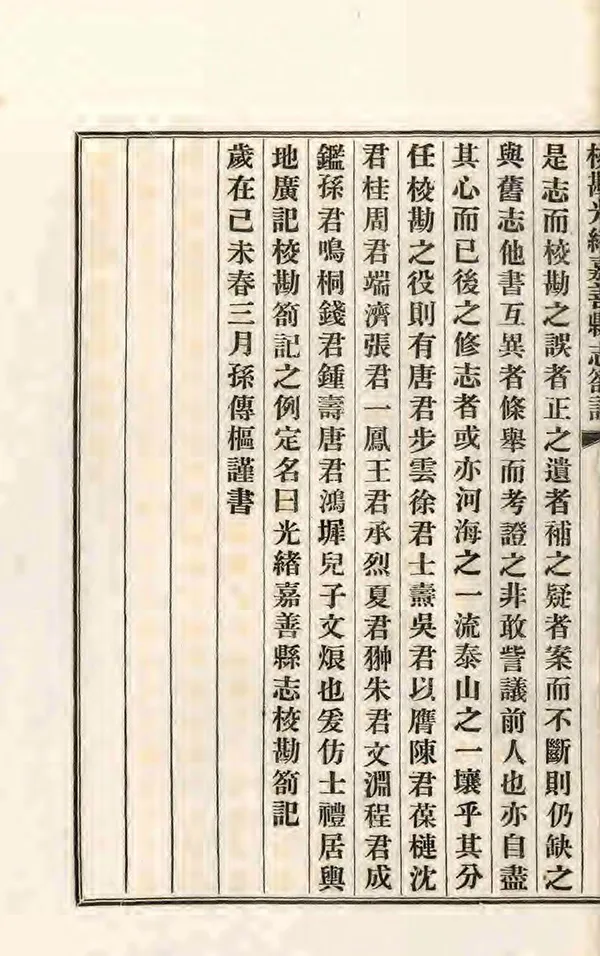 校勘光緒嘉善縣志劄記
是志而校勘之誤者正之遺者補之疑者案而不斷則仍缺之
與舊志他書互異者條舉而考證之非敢訾議前人也亦自盡
其心而已後之修志者或亦河海之一流泰山之一壤乎其分
任校勘之役則有唐君步雲徐君士燾吳君以膺陳君葆槤沈
君桂周君端濟張君一鳳王君承烈夏君翀朱君文淵程君成
鑑孫君鳴桐錢君鍾壽唐君鴻墀兒子文烺也爰仿士禮居輿
地廣記校勘劄記之例定名曰光緒嘉善縣志校勘劄記
歲在己未春三月孫傳樞謹書